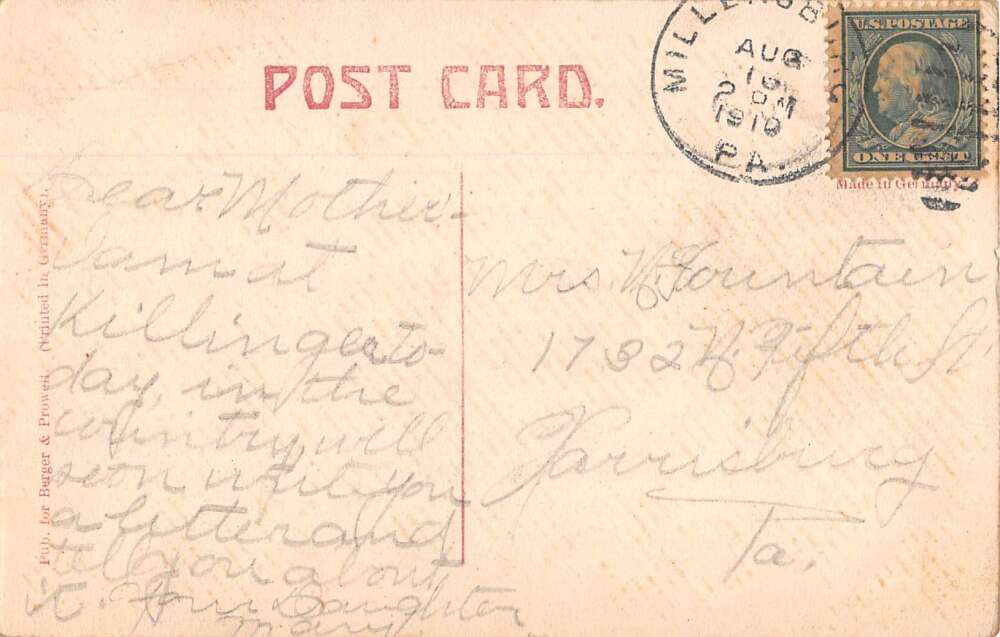 POST CARD.
MILLERSB
AUG
19
2 PM
1910
PA.
U.S. POSTAGE
ONE CENT
Made in Germany.
Pub. for Berger & Prowell. (Printed in Germany).
Dear Mother-
I am at
Killinger to-
day, in the
country, will
soon write you
a letter and
tell you about
it. Your Daughter
Mary
Mrs. N. Fountain
1732 N. Fifth St
Harrisburg
Pa.